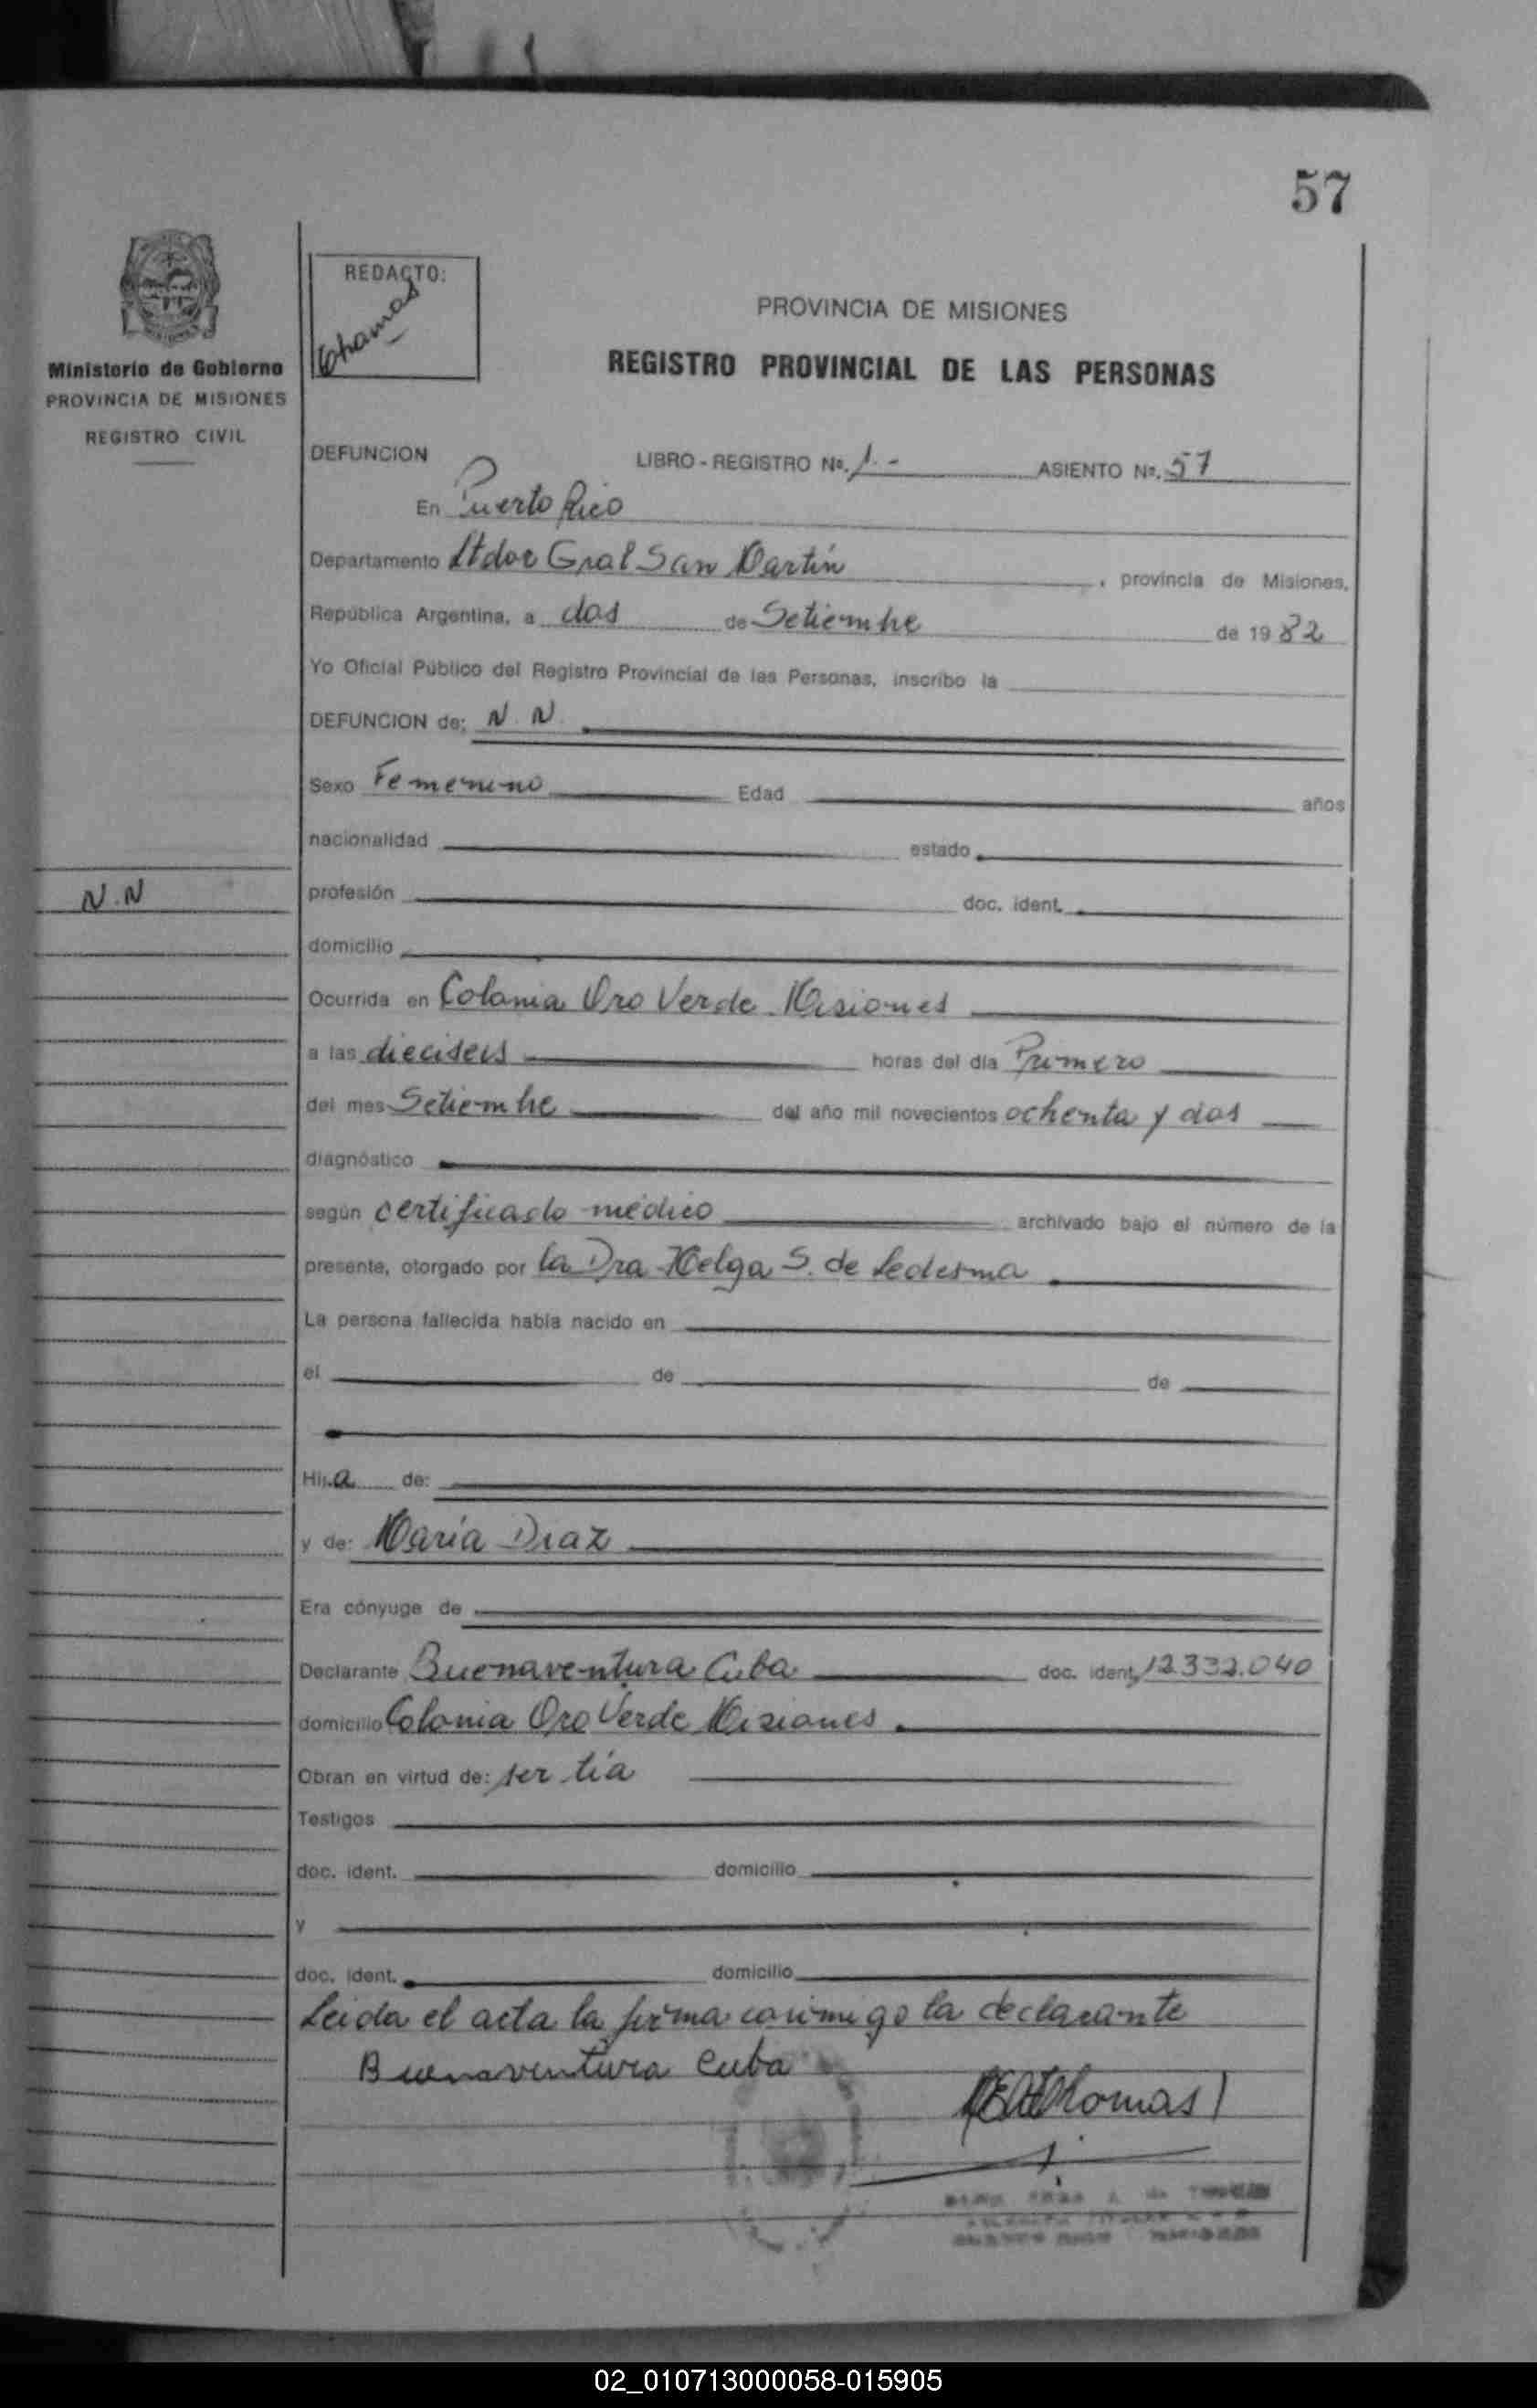 57
REDACTO:
Thomas
PROVINCIA DE MISIONES
REGISTRO PROVINCIAL DE LAS PERSONAS
Ministerio de Gobierno
PROVINCIA DE MISIONES
REGISTRO CIVIL
DEFUNCION LIBRO - REGISTRO No. 1.- ASIENTO No. 57
En Puerto Rico
Departamento Ltdor Gral San Martín, provincia de Misiones,
República Argentina, a dos de Setiembre de 1982
Yo Oficial Público del Registro Provincial de las Personas, inscribo la
DEFUNCION de: N. N.
Sexo Femenino Edad años
nacionalidad estado
N.N
profesión doc. ident.
domicilio
Ocurrida en Colonia Oro Verde Misiones
a las dieciseis horas del día Primero
del mes Setiembre del año mil novecientos ochenta y dos
diagnóstico
según certificado médico archivado bajo el número de la
presente, otorgado por la Dra Helga S. de Ledesma
La persona fallecida había nacido en
el de de
Hija de:
y de: María Diaz
Era cónyuge de
Declarante Buenaventura Cuba doc. ident. 12.332.040
domicilio Colonia Oro Verde Misiones.
Obran en virtud de: ser tía
Testigos
doc. ident. domicilio
y
doc. ident. domicilio
Leida el acta la firma conmigo la declarante
Buenaventura Cuba
Thomas
02_010713000058-015905